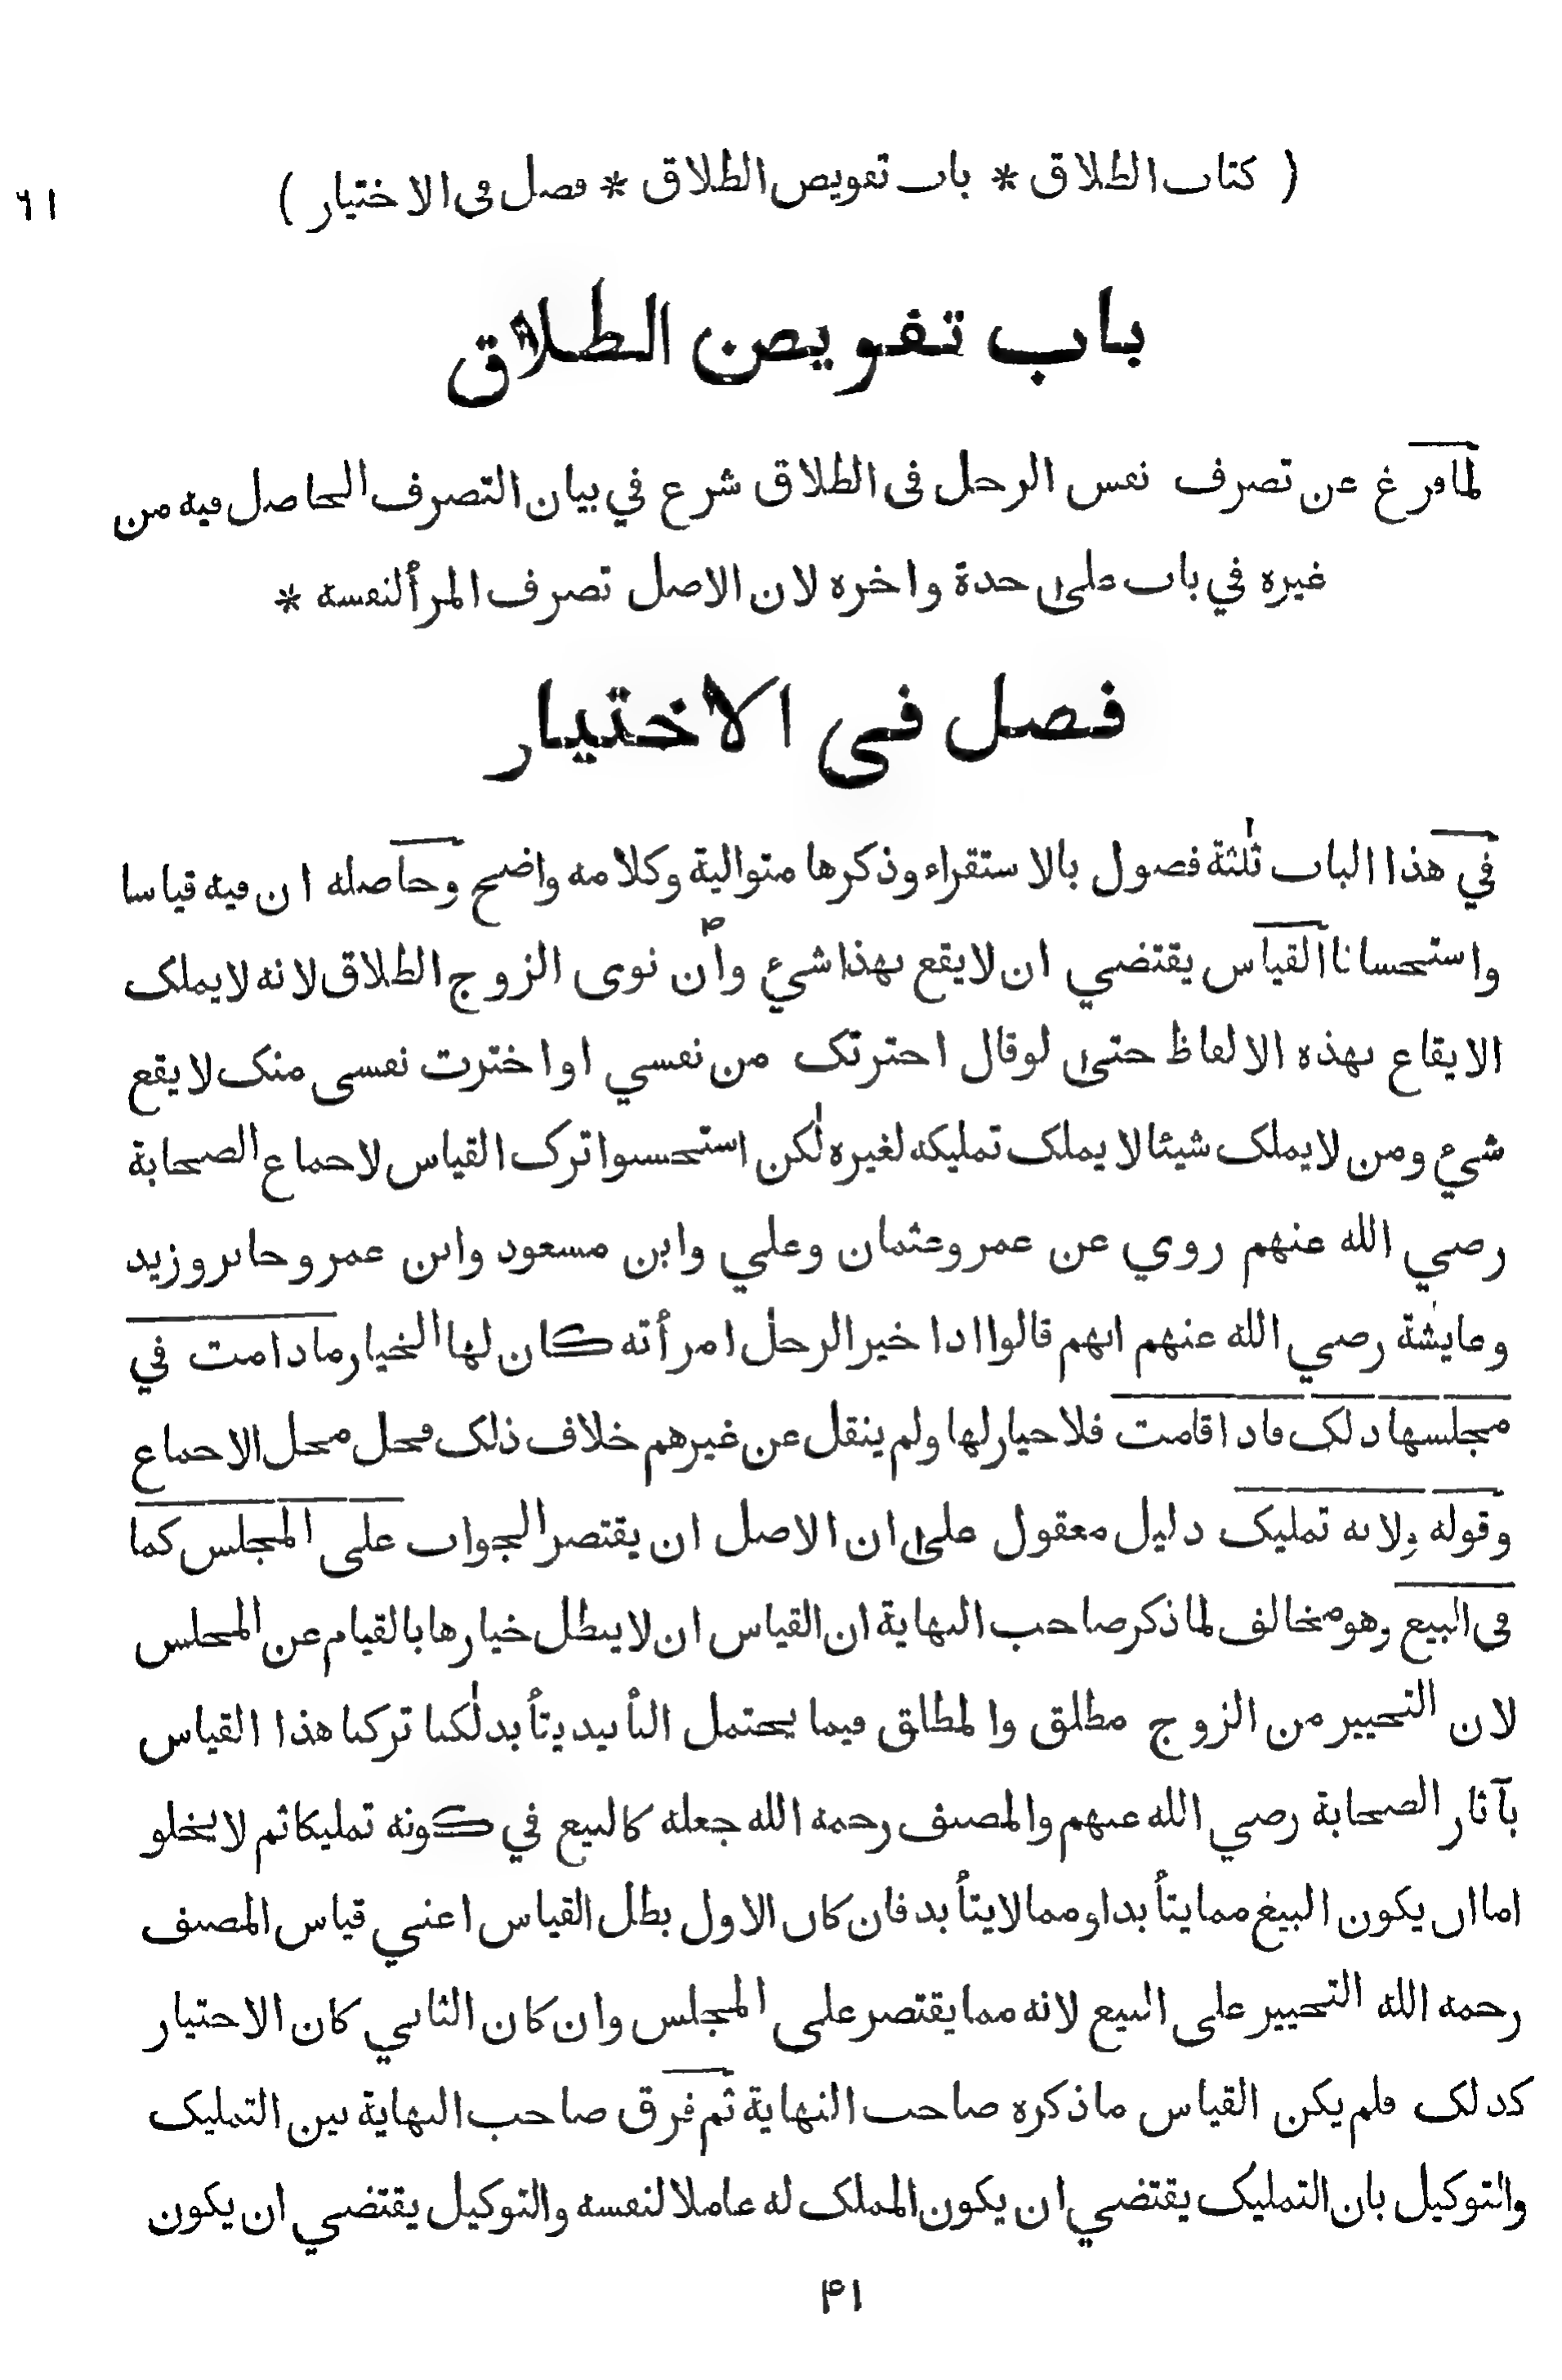 ( كتاب الطلاق * باب تفويض الطلاق * فصل في الاختيار ) ٦١
باب تفويض الطلاق
لما فرغ عن تصرف نفس الرجل في الطلاق شرع في بيان التصرف الحاصل فيه من
غيره في باب على حدة واخره لان الاصل تصرف المرأ لنفسه *
فصل في الاختيار
في هذا الباب ثلثة فصول بالاستقراء وذكرها متوالية وكلامه واضح وحاصله ان فيه قياسا
واستحسانا القياس يقتضي ان لا يقع بهذا شيء وان نوى الزوج الطلاق لانه لا يملك
الايقاع بهذه الالفاظ حتى لو قال اخترتك من نفسي او اخترت نفسي منك لا يقع
شيء ومن لا يملك شيئا لا يملك تمليكه لغيره لكن استحسنوا ترك القياس لاجماع الصحابة
رضي الله عنهم روي عن عمر وعثمان وعلي وابن مسعود وابن عمر وجابر وزيد
وعايشة رضي الله عنهم انهم قالوا اذا خير الرجل امرأته كان لها الخيار ما دامت في
مجلسها ذلك فاذا قامت فلا خيار لها ولم ينقل عن غيرهم خلاف ذلك فحل محل الاجماع
وقوله ولانه تمليك دليل معقول على ان الاصل ان يقتصر الجواب على المجلس كما
في البيع وهو مخالف لما ذكر صاحب النهاية ان القياس ان لا يبطل خيارها بالقيام عن المجلس
لان التخيير من الزوج مطلق والمطلق فيما يحتمل التأبيد يتأبد لكنا تركنا هذا القياس
بآثار الصحابة رضي الله عنهم والمصنف رحمه الله جعله كالبيع في كونه تمليكا ثم لا يخلو
اما ان يكون البيع مما يتأبد او مما لا يتأبد فان كان الاول بطل القياس اعني قياس المصنف
رحمه الله التخيير على البيع لانه مما يقتصر على المجلس وان كان الثاني كان الاختيار
كذلك فلم يكن القياس ما ذكره صاحب النهاية ثم فرق صاحب النهاية بين التمليك
والتوكيل بان التمليك يقتضي ان يكون المملك له عاملا لنفسه والتوكيل يقتضي ان يكون
۴۱